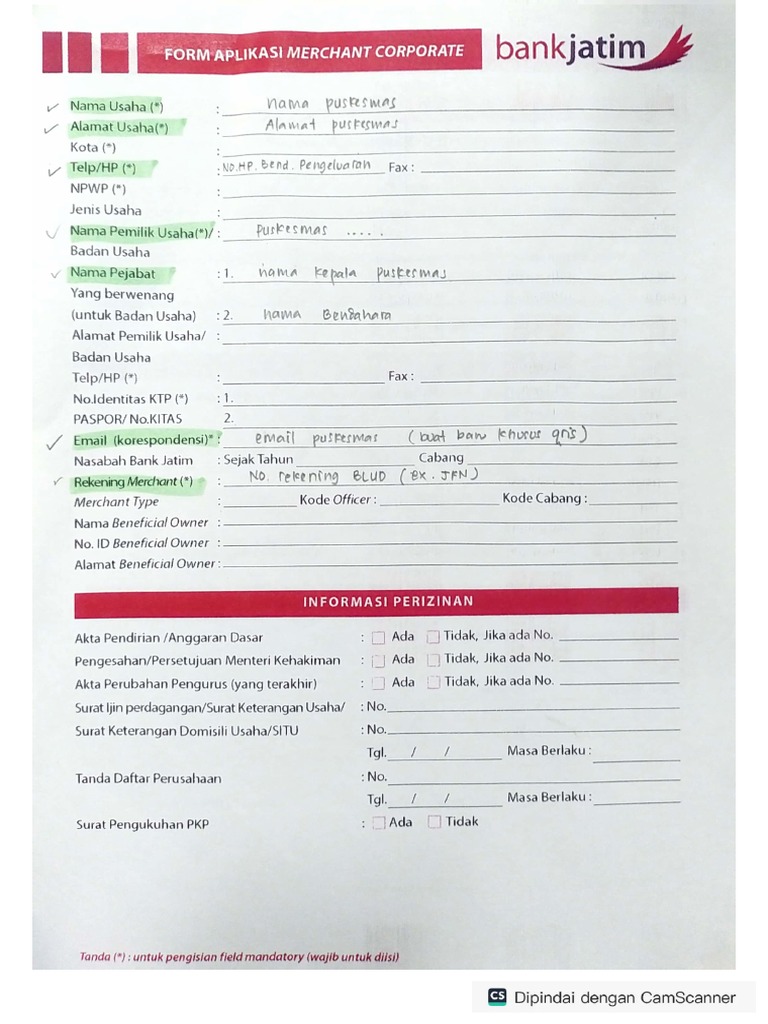 FORM APLIKASI MERCHANT CORPORATE
bankjatim
Nama Usaha (*) : nama puskesmas
Alamat Usaha(*) : Alamat puskesmas
Kota (*) :
Telp/HP (*) : NO.HP. Bend. Pengeluaran Fax :
NPWP (*) :
Jenis Usaha :
Nama Pemilik Usaha(*)/ : puskesmas .....
Badan Usaha
Nama Pejabat : 1. nama kepala puskesmas
Yang berwenang
(untuk Badan Usaha) : 2. nama Bendahara
Alamat Pemilik Usaha/ :
Badan Usaha
Telp/HP (*) : Fax :
No.Identitas KTP (*) : 1.
PASPOR/ No.KITAS 2.
Email (korespondensi)* : email puskesmas (buat baru khusus qris)
Nasabah Bank Jatim : Sejak Tahun Cabang
Rekening Merchant (*) : NO. rekening BLUD (ex. JFN)
Merchant Type : Kode Officer : Kode Cabang :
Nama Beneficial Owner :
No. ID Beneficial Owner :
Alamat Beneficial Owner :
INFORMASI PERIZINAN
Akta Pendirian /Anggaran Dasar : Ada Tidak, Jika ada No.
Pengesahan/Persetujuan Menteri Kehakiman : Ada Tidak, Jika ada No.
Akta Perubahan Pengurus (yang terakhir) : Ada Tidak, Jika ada No.
Surat Ijin perdagangan/Surat Keterangan Usaha/ : No.
Surat Keterangan Domisili Usaha/SITU : No.
Tgl. / / Masa Berlaku :
Tanda Daftar Perusahaan : No.
Tgl. / / Masa Berlaku :
Surat Pengukuhan PKP : Ada Tidak
Tanda (*) : untuk pengisian field mandatory (wajib untuk diisi)
CS Dipindai dengan CamScanner